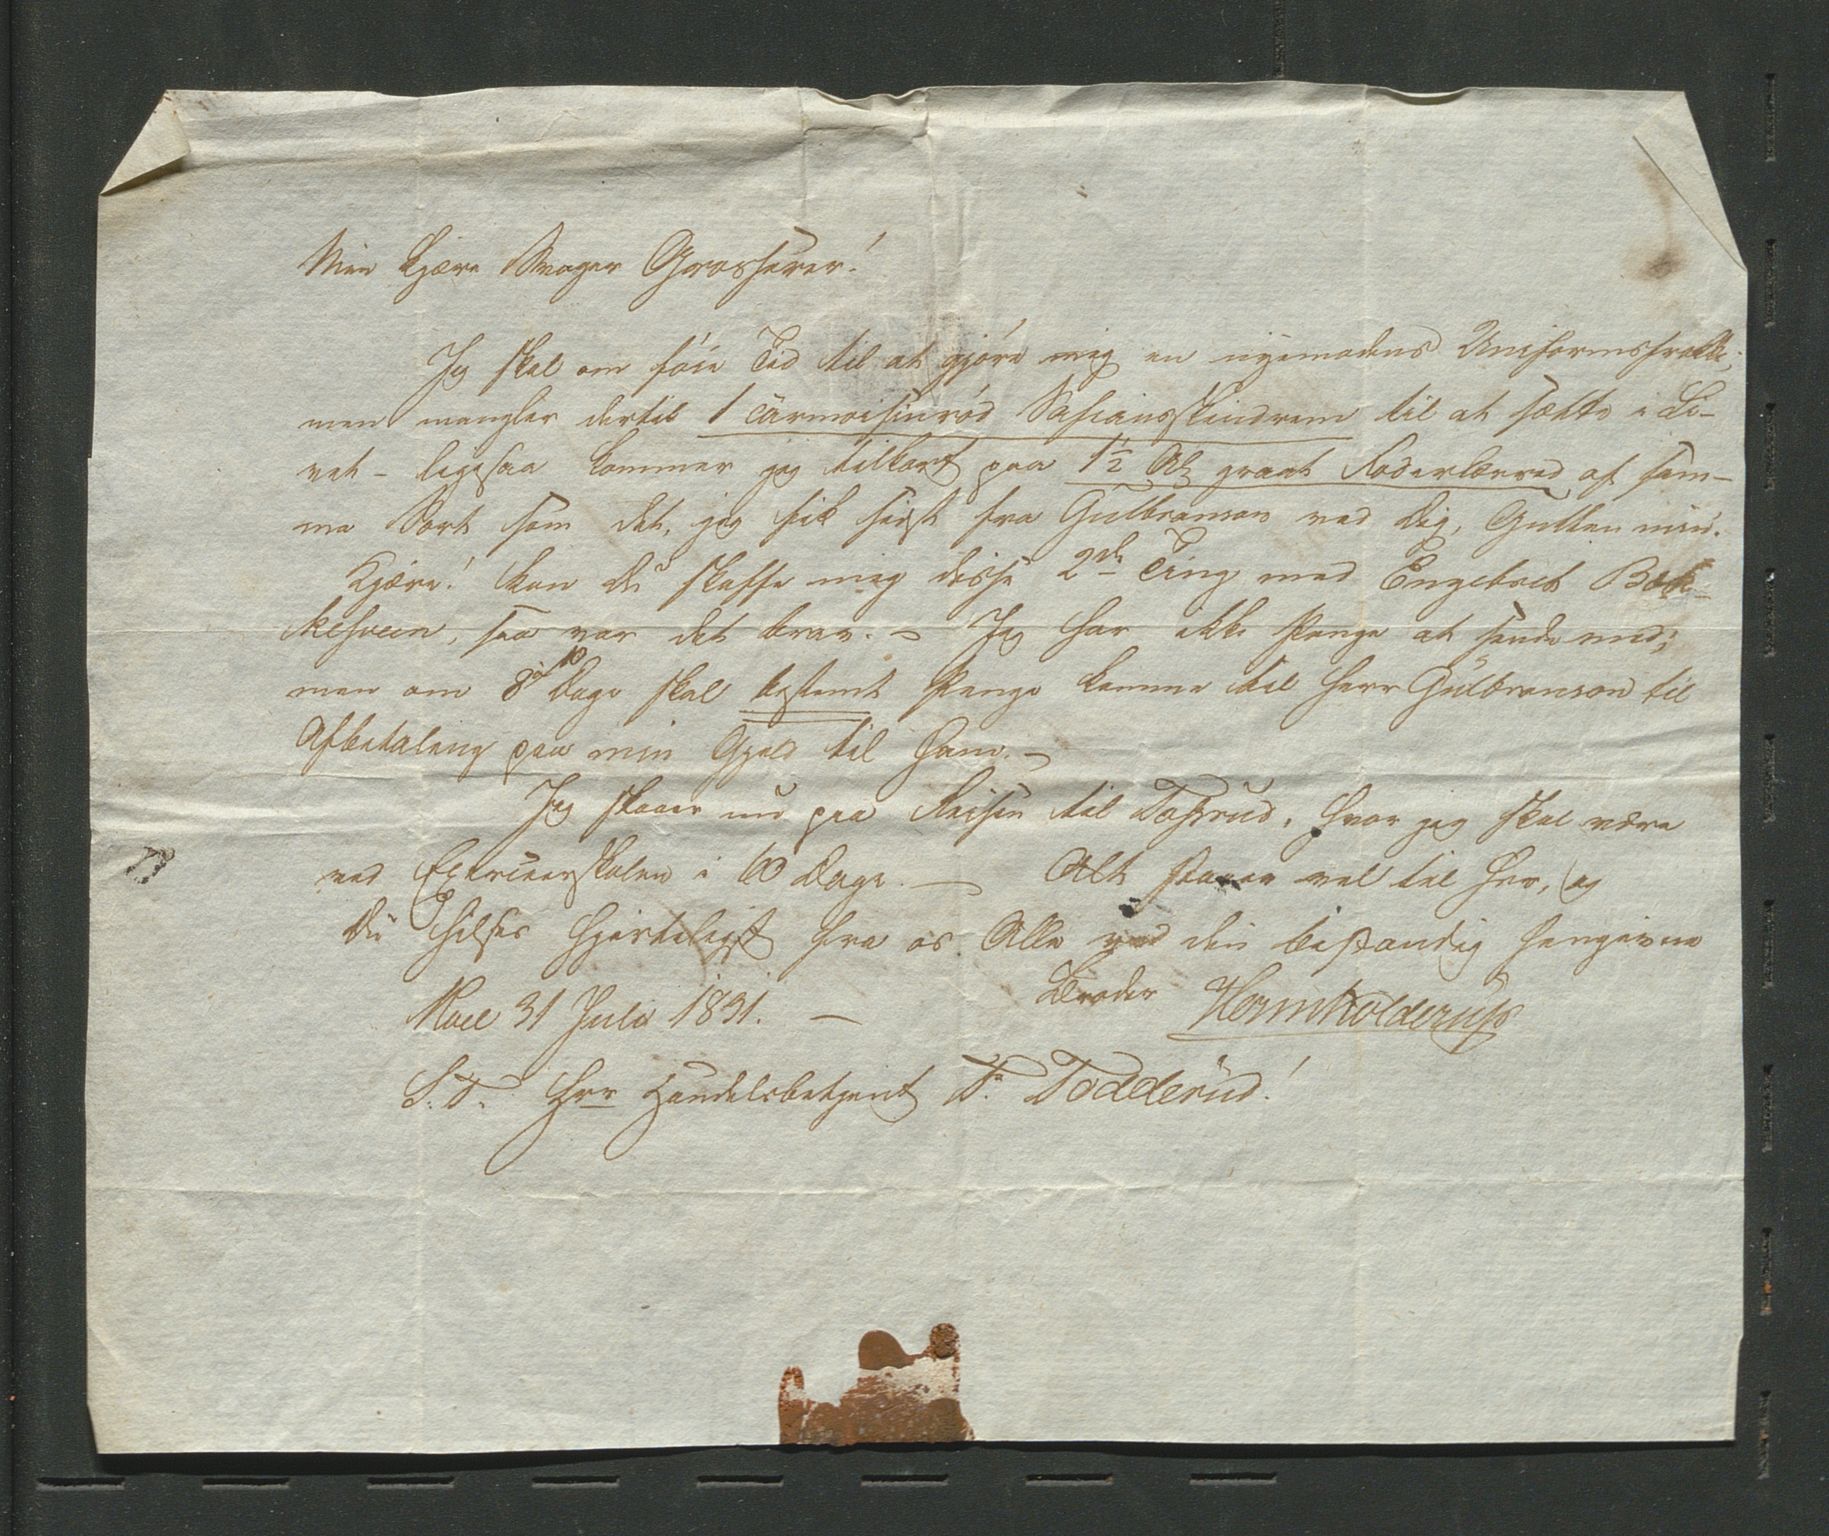 Min kjære Svoger Grosserer!
Jeg skal om föie Tid til at gjöre mig en nyemodens Uniformsfrakke;
men mangler dertil 1 carmoisinröd Safiansskindrem til at sætte i Li-
vet – ligesaa kommer jeg tilkort paa 1½ Al graat Foderlærred af sam-
me Sort som det, jeg fik sidst fra Gulbranson ved dig, Gutten min.
Kjære! kan Du skaffe mig disse 2de Ting med Engebret Bæk-
kesveen, saa var det brav. – Jeg har ikke Penge at sende med;
men om 8 á 10 Dage skal bestemt Penge komme til Herr Gulbranson til
Afbetaling paa min Gjeld til ham. –
Jeg staaer nu paa Reisen til Tossrud, hvor jeg skal være
ved Exerceerskolen i 60 Dage. – Alt staaer vel til her, og
Du hilses hjerteligst fra os Alle ved din bestandig hengivne
Broder Hornkolderup
Moe 31 Juli 1831. –
S. T. Hrr Handelsbetjent T. Todderud!